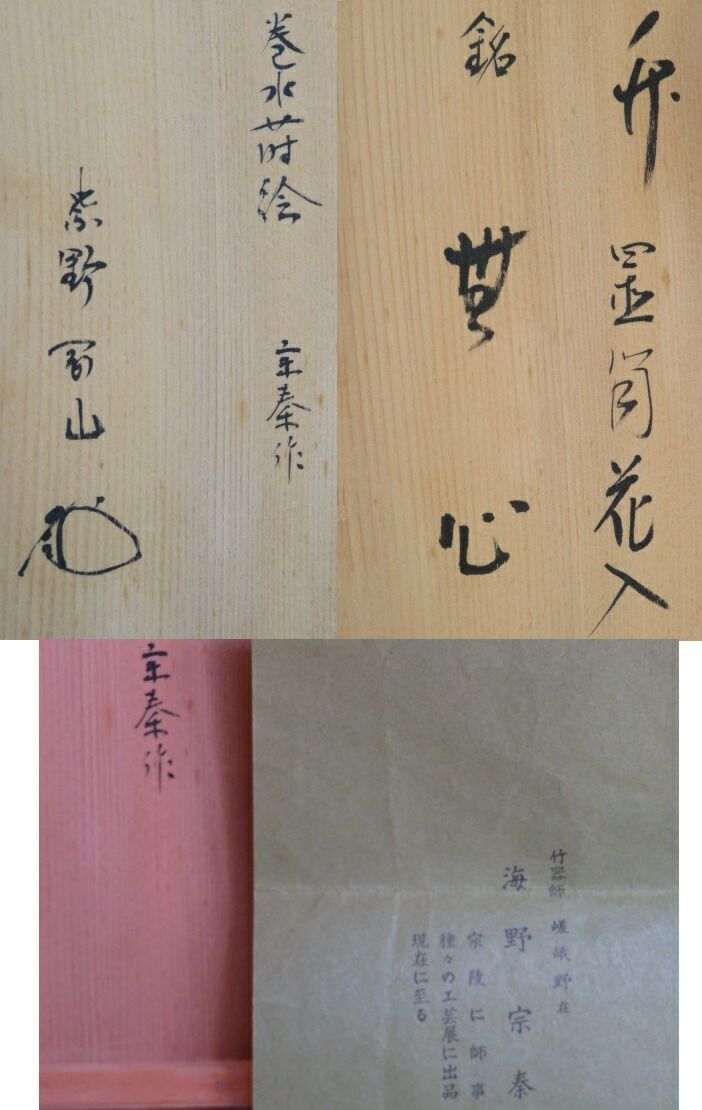 巻水蒔絵 宗秦作
紫野 山
竹 置筒花入
銘 無心
宗秦作
竹器師 嵯峨野在
海野宗秦
宗陵に師事
種々の工芸展に出品
現在に至る